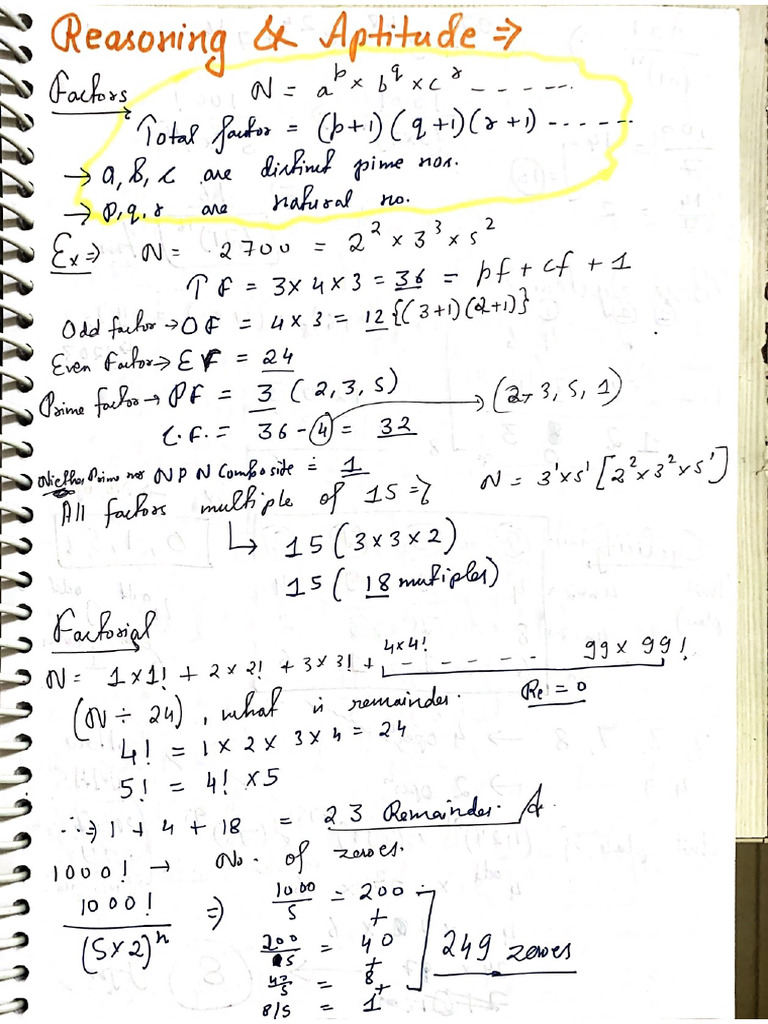 Reasoning & Aptitude ⇒
Factors N = a^p × b^q × c^r - - - - - -
Total factor = (p+1) (q+1) (r+1) - - - - - -
→ a, b, c are distinct pime nos.
→ p, q, r are natural no.
Ex ⇒ N = 2700 = 2^2 × 3^3 × 5^2
TF = 3 × 4 × 3 = 36 = pf + cf + 1
Odd factor → OF = 4 × 3 = 12 {(3+1) (2+1)}
Even Factor → EF = 24
Prime factor → PF = 3 (2, 3, 5)
C.F. = 36 - 4 = 32 → (2, 3, 5, 1)
Niether Prime nor NPN Composite = 1
N = 3^1 × 5^1 [2^2 × 3^2 × 5^1]
All factors multiple of 15 ⇒
↳ 15 (3 × 3 × 2)
15 ( 18 mutiples)
Factorial
N = 1 × 1! + 2 × 2! + 3 × 3! + 4×4! - - - - - 99 × 99!
(N ÷ 24), what is remainder. Re = 0
4! = 1 × 2 × 3 × 4 = 24
5! = 4! × 5
∴ ⇒ 1 + 4 + 18 = 23 Remainder.
1000! → No. of zeroes.
1000! / (5×2)^n ⇒ 1000/5 = 200 +
200/5 = 40 +
40/5 = 8 +
8/5 = 1
249 zeroes